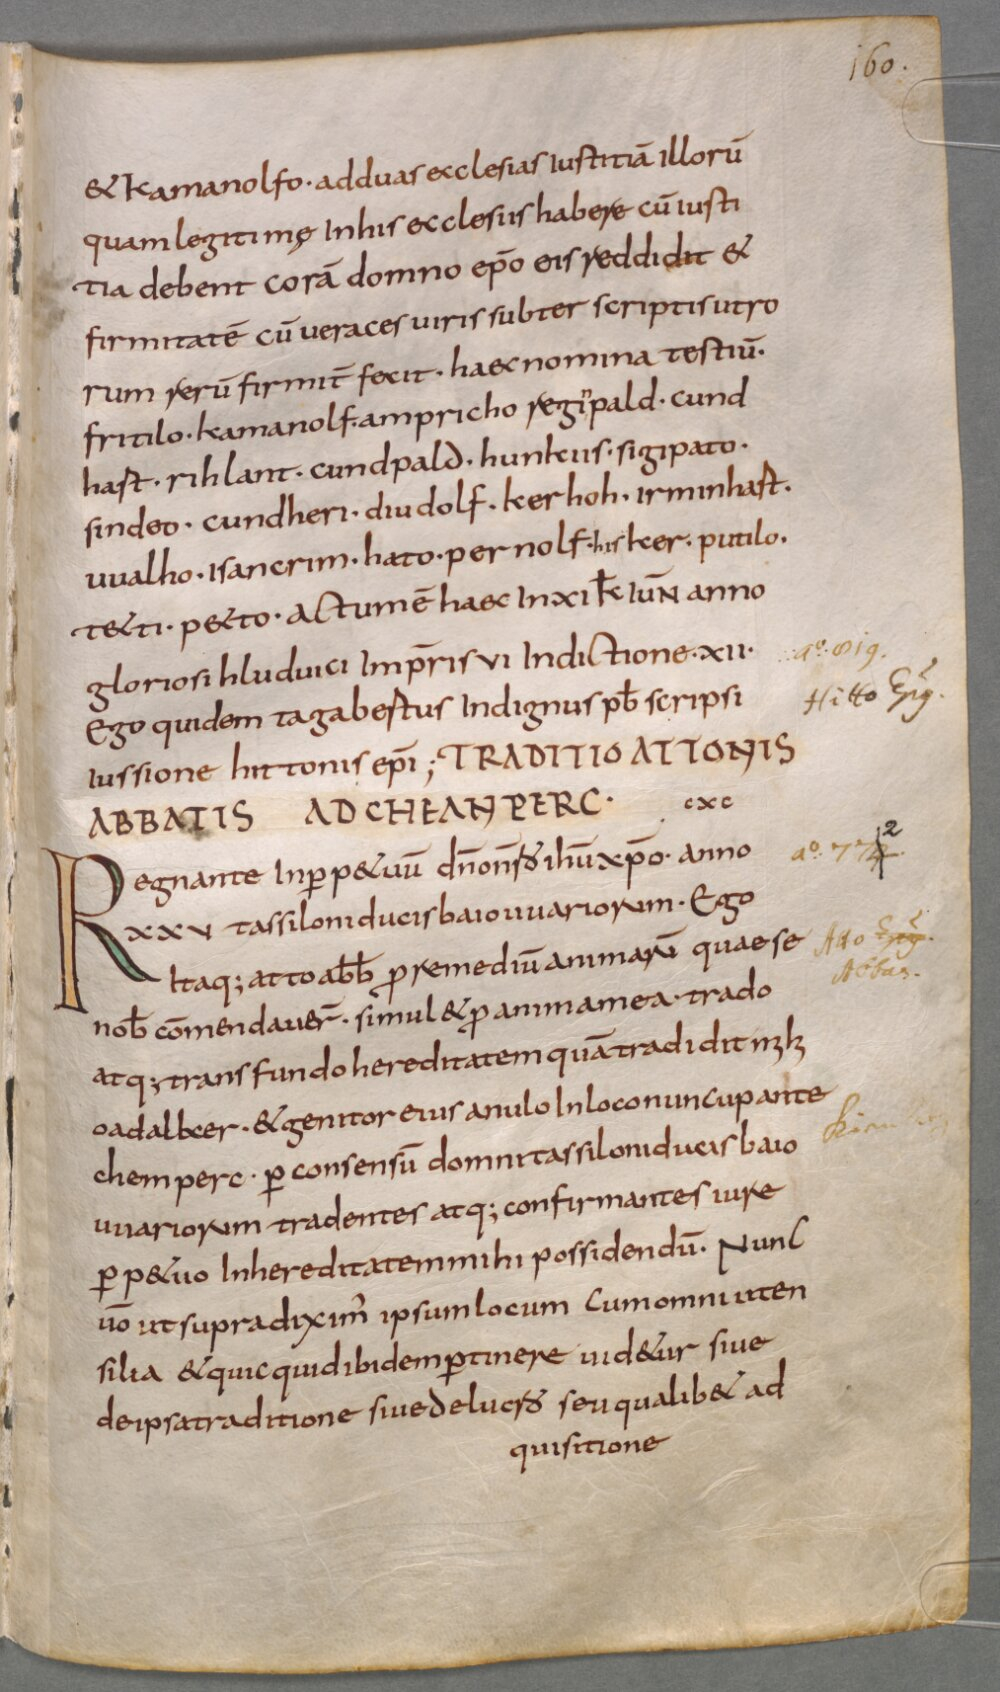 160.
& kamanolfo · ad duas ecclesias iustitiā illorū
quam legitimę In his ecclesiis habere cū iusti
tia debent corā domno ep̄o eis reddidit &
firmitatē cū ueraces uiris subter scriptis utro
rum rerū firmit̄ fecit · haec nomina testiū·
fritilo · kamanolf · ampricho regīpald · cund
hast · rihlant · cundpald · hunkiis · sigipato ·
sindeo · cundheri · diudolf · kerhoh · irminhast ·
uualho · isancrim · hato · pernolf · hisker · putilo ·
t&ti · p&to · actum ē haec In xi k̄ iuN̄ anno
gloriosi hluduuici Imp̄ris vi Indictione · xii ·
aº. 819.
Ego quidem tagabertus Indignus pb̄ scripsi
Hitto
iussione hittonis ep̄i ; TRADITIO ATTONIS
ABBATIS AD CHEANPERC · cxc
Regnante In ꝑp&uū dn̄o nr̄o ihū xp̄o · anno
aº. 772
xxv tassiloni ducis baiouuariorum · Ego
Itaq; atto abb̄ ꝓ remediū animarū quae se
Atto
Abbas.
nob̄ cōmendauer̄ · simul & ꝓ anima mea · trado
atq; transfundo hereditatem quā tradidit mℏ
oadalker · & genitor eius anulo In loco nuncupante
chemperc · ꝑ consensū domni tassiloni ducis baio
uuariorum tradentes atq; confirmantes iure
ꝑp&uo In hereditatem mihi possidendū · Nunc
uō ut supra diximꝰ ipsum locum cum omni uten
silia & quicquid ibidem ꝑtinere uid&ur siue
de ipsa traditione siue de lucro seu qualib& ad
quisitione